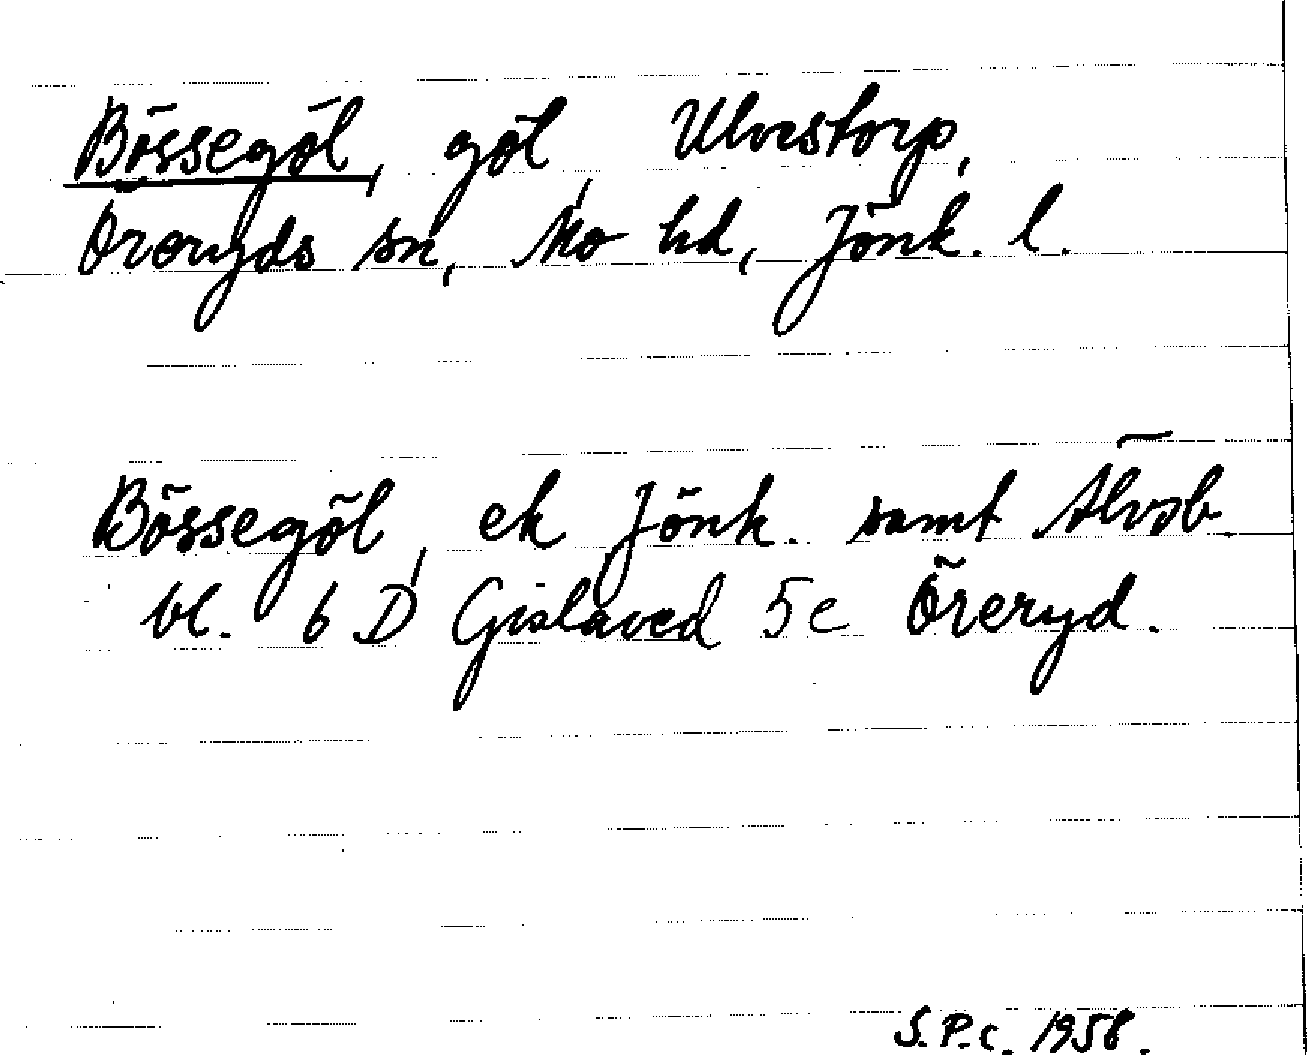 Bössegöl, göl, Ulvestorp,
Öreryds sn, Mo hd, Jönk. l.
Bössegöl, ek Jönk. samt Älvsb.
bl. 6 D Gislaved 5c Öreryd.
S.P.C. 1958.